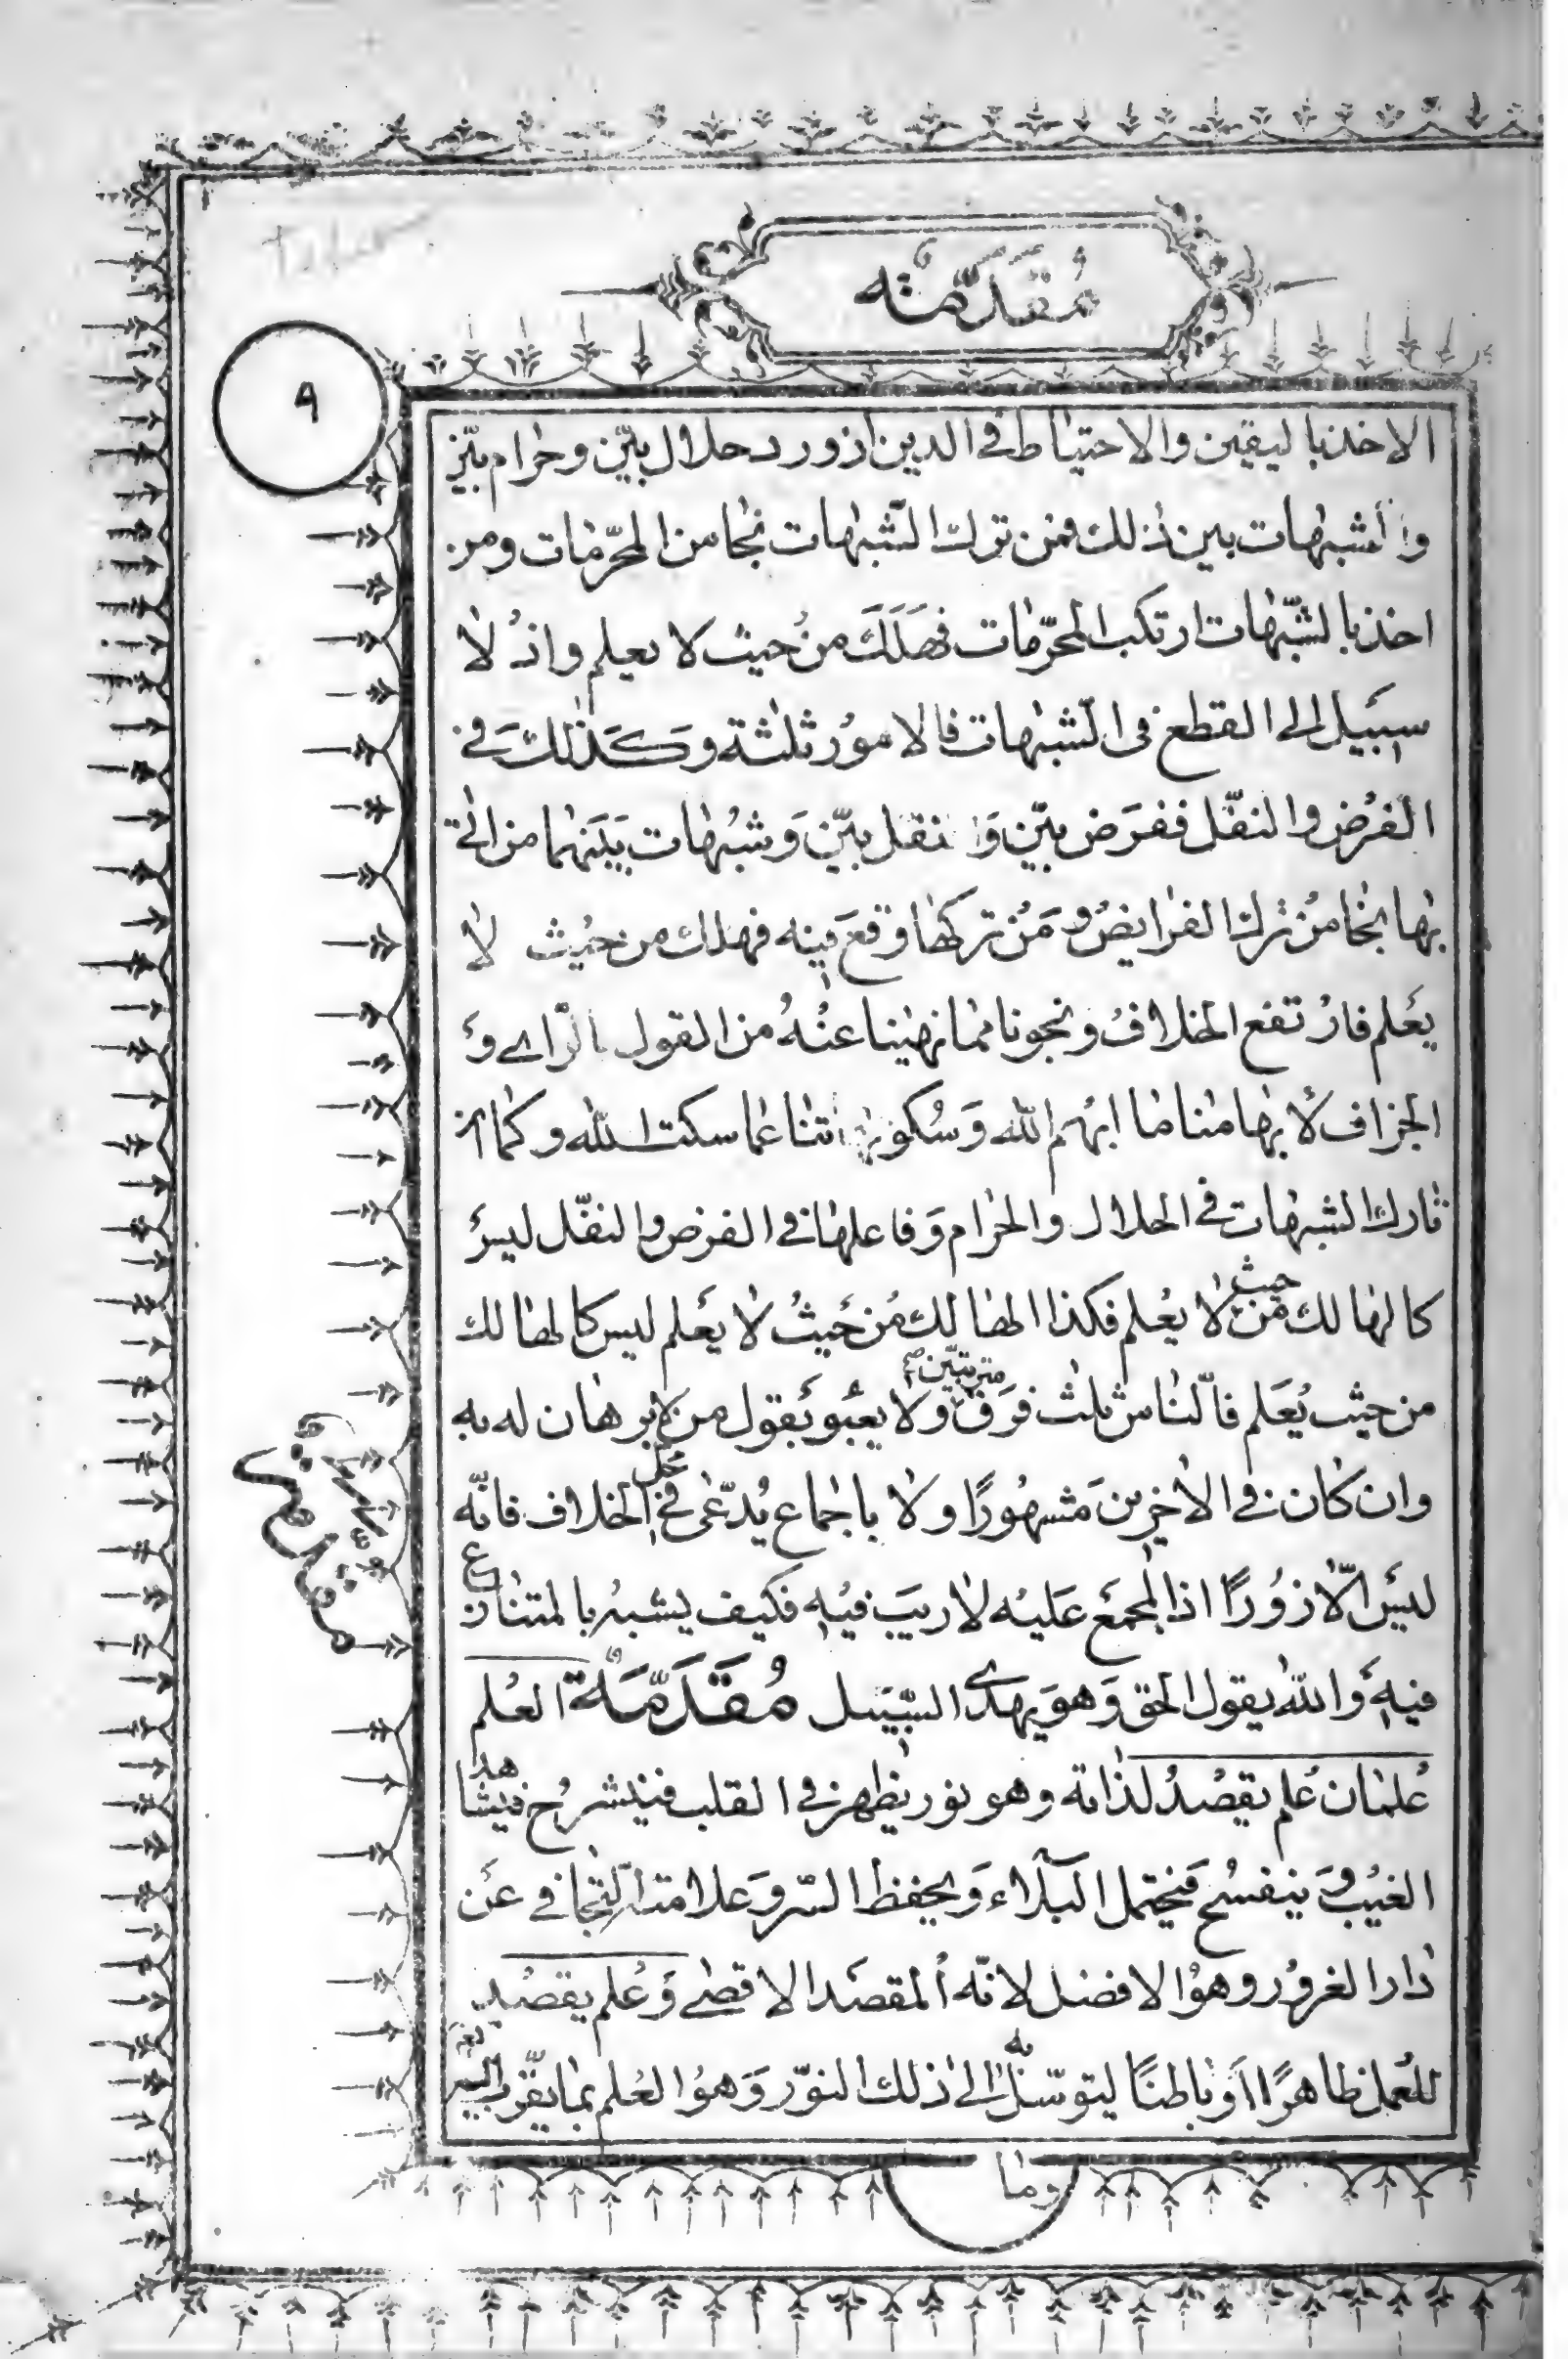 مُقَدِّمَته
٩
الاخذ باليقين والاحتياط في الدين اذ ورد حلال بيّن وحرام بيّن
و شبهات بين ذلك فمن ترك الشبهات نجا من المحرّمات ومن
اخذ بالشّبهات ارتكب المحرّمات فهَلَكَ من حيث لا يعلم واذ لا
سبيل الى القطع فى الشبهات فالامور ثلثة وكذلك في
الفرض والنفل ففرض بيّن و نفل بيّن وشبهات بينهما من اتى
بها نجا من ترك الفرايض ومن تركها وقع فيه فهلك من حيث لا
يعلم فارتفع الخلاف ونجونا مما نهينا عنه من القول بالرّاى و
الجزاف لابهامنا ما ابهم الله وسكوتنا عما سكت الله وكما ان
تارك الشبهات في الحلال والحرام وفاعلها في الفرض والنفل ليس
كالهالك من حيث لا يعلم فكذا الهالك من حيث لا يعلم ليس كالهالك
من حيث يعلم فالناس ثلث فرق مترتبين ولا يعبؤ بقول من لا برهان له به
وان كان في الاخرين مشهورًا ولا باجماع يدّعى في محل الخلاف فانّه
ليس الّا زورًا اذ المجمع عليه لا ريب فيه فكيف يشبه بالمتنازع
فيه والله يقول الحق وهو يهدى السّبيل مُقَدِّمَة العلم
علمان علم يقصد لذاته وهو نور يظهر في القلب فينشرح فيشاهد
الغيب وينفسح فيحتمل البلاء ويحفظ السّر وعلامته التجافي عن
دار الغرور وهو الافضل لانّه المقصد الاقصى وعلم يقصد
للعمل ظاهرًا او باطنًا ليتوسّل به الى ذلك النور وهو العلم بما يقرّب
وما